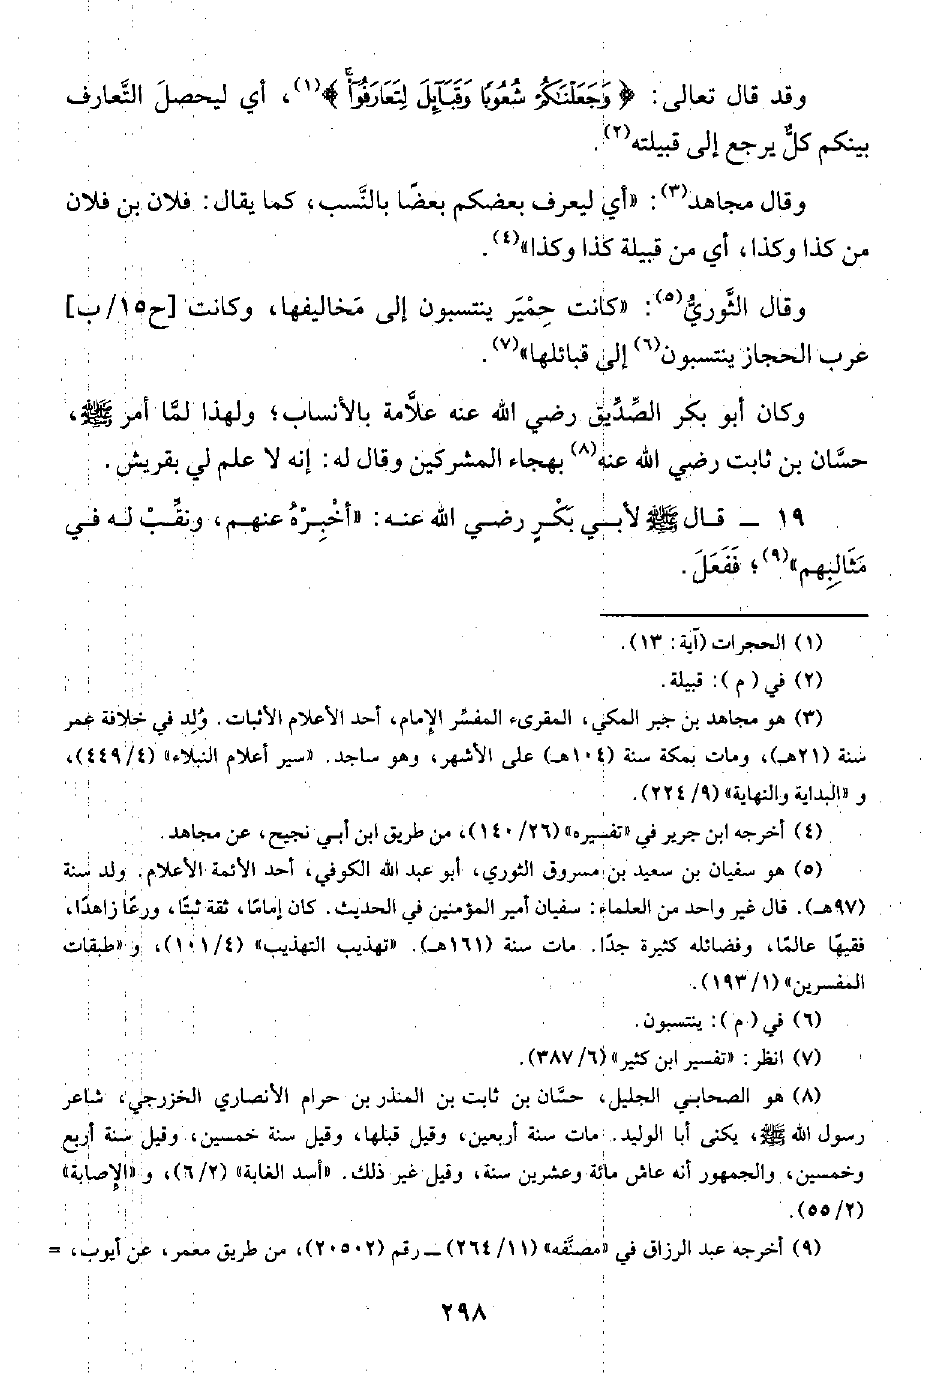 وقد قال تعالى: ﴿ وَجَعَلْنَٰكُمْ شُعُوبًا وَقَبَآئِلَ لِتَعَارَفُوٓا۟ ﴾(١)، أي ليحصلَ التَّعارف
بينكم كلٌّ يرجع إلى قبيلته(٢).
وقال مجاهد(٣): «أي ليعرف بعضكم بعضًا بالنَّسب، كما يقال: فلان بن فلان
من كذا وكذا، أي من قبيلة كذا وكذا»(٤).
وقال الثَّوريُّ(٥): «كانت حِمْيَر ينتسبون إلى مَخاليفها، وكانت [ح١٥/ب]
عرب الحجاز ينتسبون(٦) إلى قبائلها»(٧).
وكان أبو بكر الصِّدِّيق رضي الله عنه علاَّمة بالأنساب؛ ولهذا لمَّا أمر ﷺ،
حسَّان بن ثابت رضي الله عنه(٨) بهجاء المشركين وقال له: إنه لا علم لي بقريش.
١٩ ـ قال ﷺ لأبي بَكْرٍ رضي الله عنه: «أخْبِرْهُ عنهم، ونقِّبْ له في
مَثَالِبِهم»(٩)؛ فَفَعَلَ.
(١) الحجرات (آية: ١٣).
(٢) في (م): قبيلة.
(٣) هو مجاهد بن جبر المكي، المقرىء المفسِّر الإمام، أحد الأعلام الأثبات. وُلِد في خلافة عمر
سنة (٢١هـ)، ومات بمكة سنة (١٠٤هـ) على الأشهر، وهو ساجد. «سير أعلام النبلاء» (٤/٤٤٩)،
و «البداية والنهاية» (٩/٢٢٤).
(٤) أخرجه ابن جرير في «تفسيره» (٢٦/١٤٠)، من طريق ابن أبي نجيح، عن مجاهد.
(٥) هو سفيان بن سعيد بن مسروق الثوري، أبو عبد الله الكوفي، أحد الأئمة الأعلام. ولد سنة
(٩٧هـ). قال غير واحد من العلماء: سفيان أمير المؤمنين في الحديث. كان إمامًا، ثقة ثبتًا، ورعًا زاهدًا،
فقيهًا عالمًا، وفضائله كثيرة جدًا. مات سنة (١٦١هـ). «تهذيب التهذيب» (٤/١٠١)، و «طبقات
المفسرين» (١/١٩٣).
(٦) في (م): ينتسبون.
(٧) انظر: «تفسير ابن كثير» (٦/٣٨٧).
(٨) هو الصحابي الجليل، حسَّان بن ثابت بن المنذر بن حرام الأنصاري الخزرجي، شاعر
رسول الله ﷺ، يكنى أبا الوليد. مات سنة أربعين، وقيل قبلها، وقيل سنة خمسين، وقيل سنة أربع
وخمسين، والجمهور أنه عاش مائة وعشرين سنة، وقيل غير ذلك. «أسد الغابة» (٢/٦)، و «الإصابة»
(٢/٥٥).
(٩) أخرجه عبد الرزاق في «مصنَّفه» (١١/٢٦٤) ــ رقم (٢٠٥٠٢)، من طريق معمر، عن أيوب، =
٢٩٨